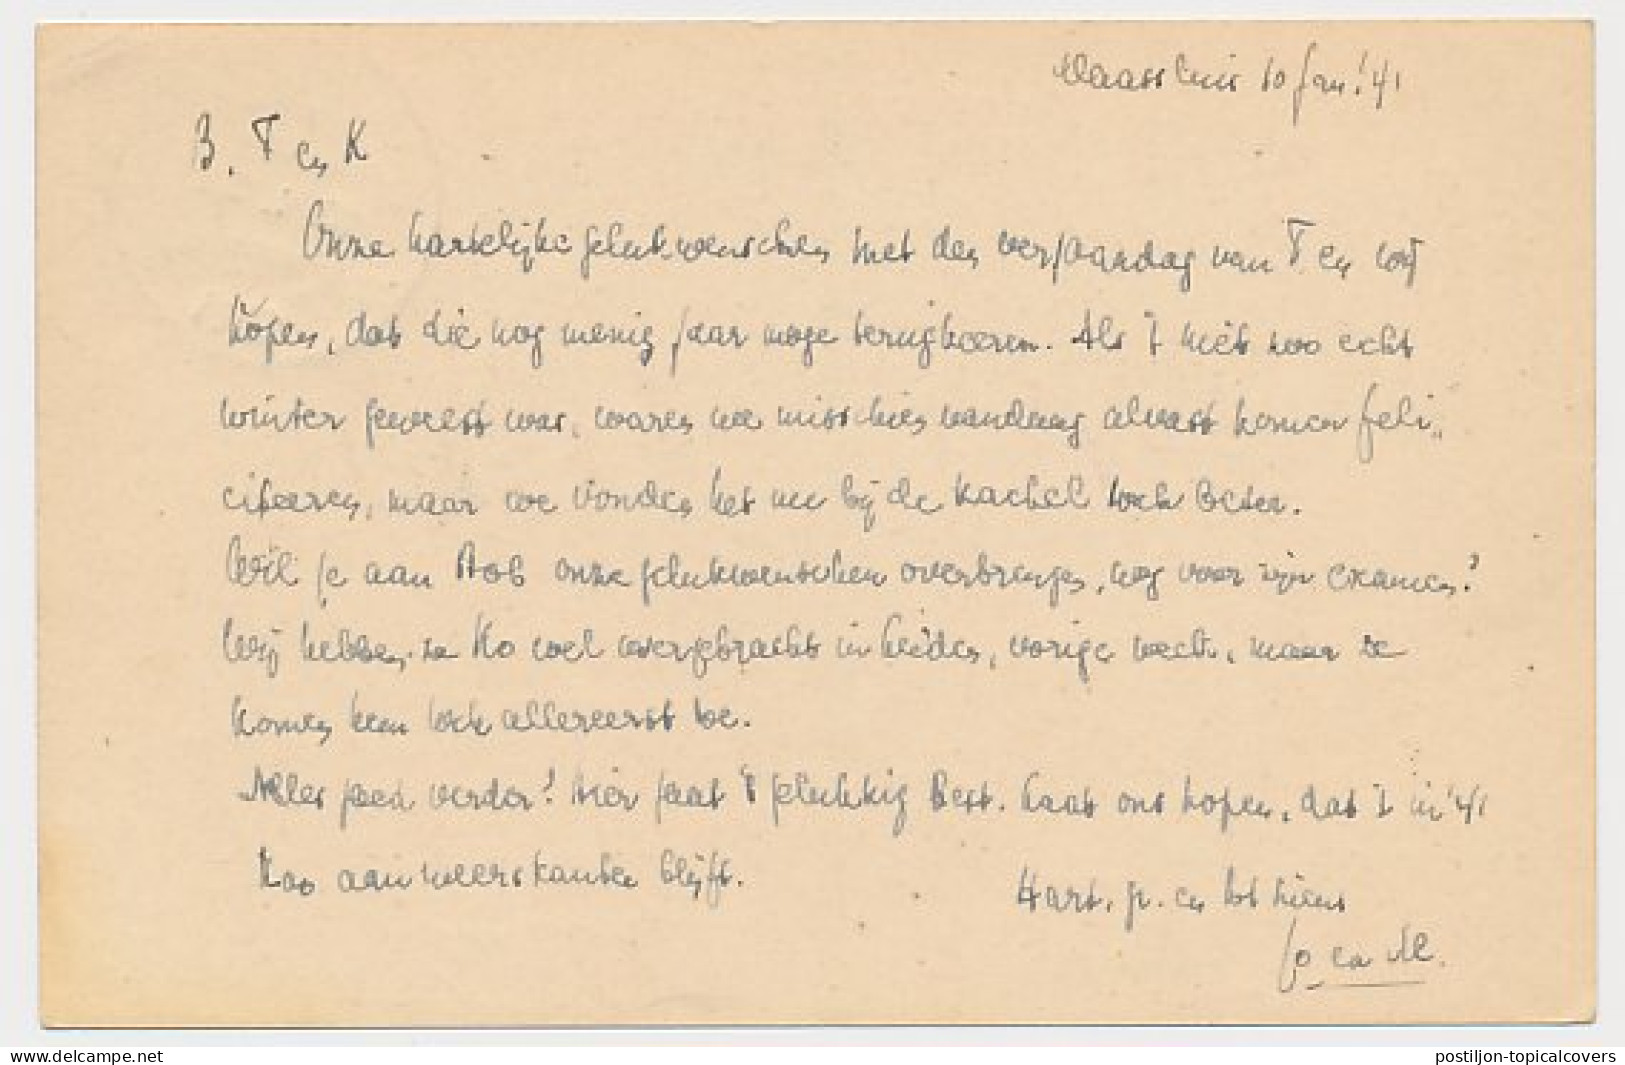 Maassluis 10 Jan. '41
B. T en K
Onze hartelijke gelukwenschen met den verjaardag van T. en wij
hopen, dat die nog menig jaar moge terugkeeren. Als 't niet zoo echt
winter geweest was, waren we misschien vandaag alvast komen feli„
citeeren, maar we vonden het nu bij de kachel toch beter.
Wil je aan Rob onze gelukwenschen overbrengen, nog voor zijn examen?
Wij hebben ze Ko wel overgebracht in Leiden, vorige week, maar ze
komen hem toch allereerst toe.
Alles goed verder? Hier gaat 't gelukkig best. Laat ons hopen, dat 't in '41
zoo aan weerskanten blijft.
Hart. gr. en tot ziens
Jo en M.
www.delcampe.net
postiljon-topicalcovers